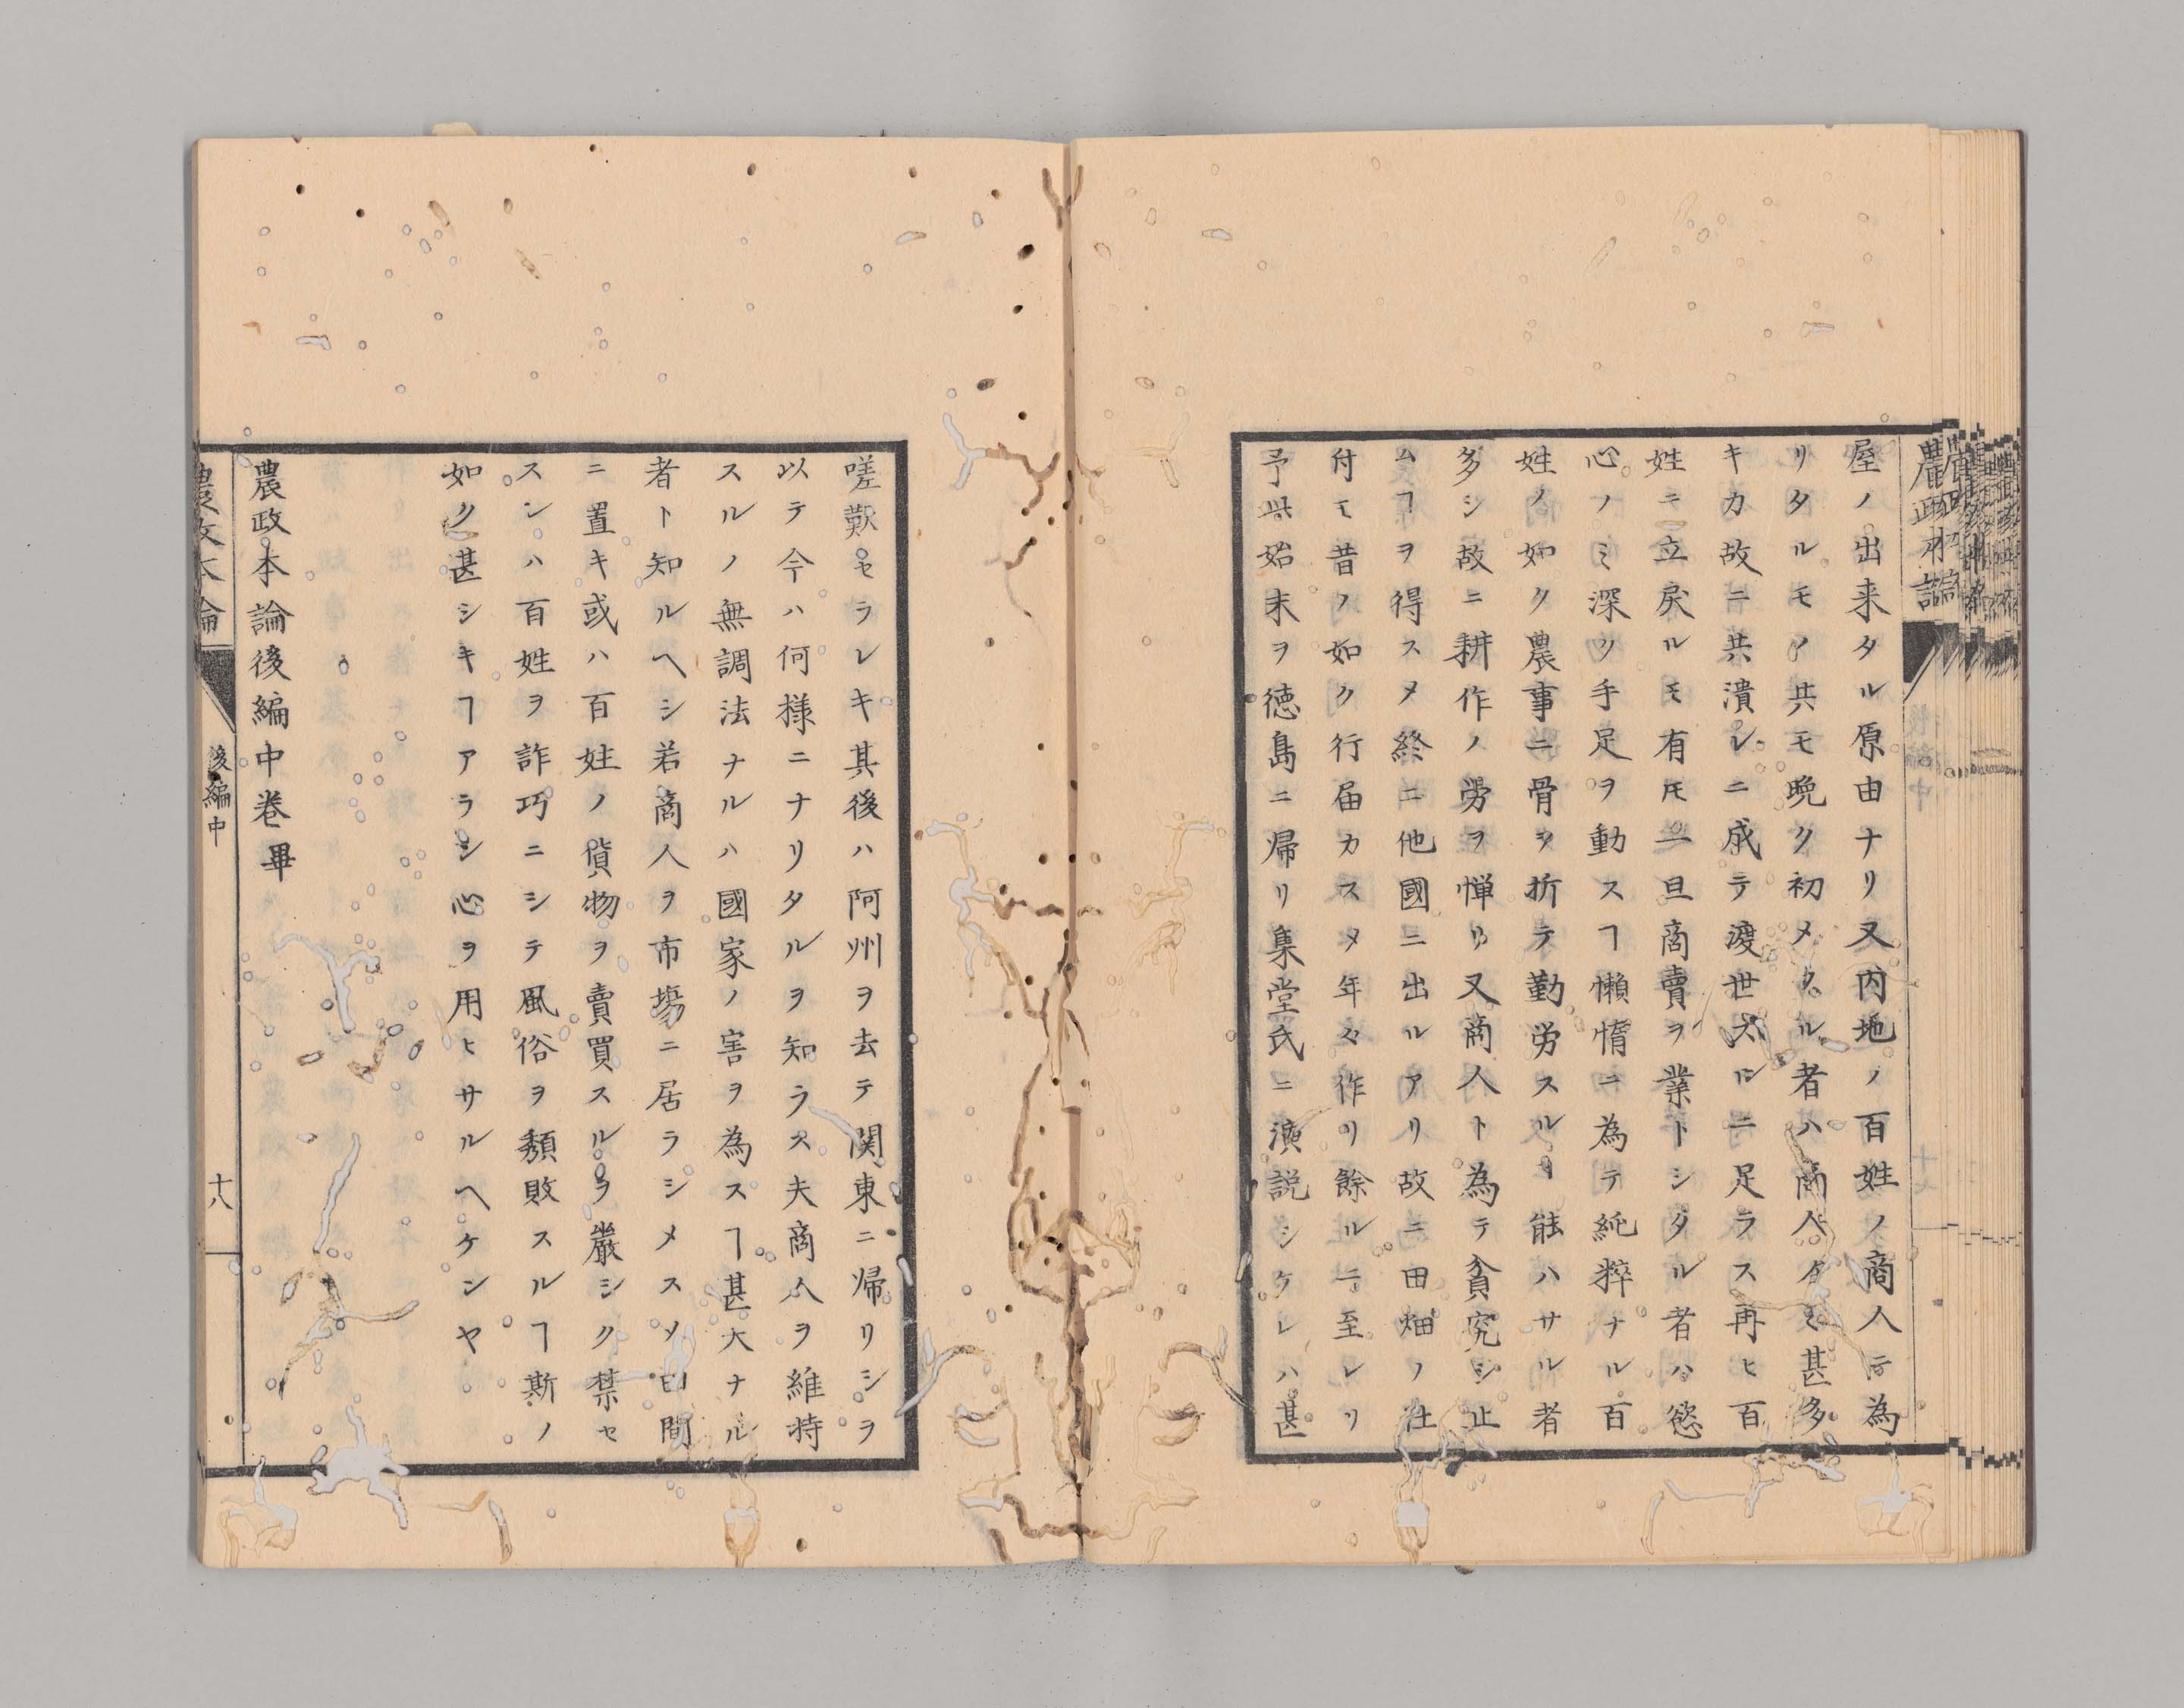 屋ノ出来タル原由ナリ又内地ノ百姓ノ商人ニ為
リタルモノ共モ晩ク初メタル者ハ商人タモ甚多
キカ故ニ共潰レニ成テ渡世大ニニ足ラス再ヒ百
姓ニ立戻ルモ有モ一旦商賣ヲ業トシタル者ハ慾
心ノミ深ク手足ヲ動スヿ懶惰ニ為テ純粹ナル百
姓ノ如ク農事ニ骨ヲ折テ勤労スルヿ能ハサル者
多シ故ニ耕作ノ労ヲ憚リ又商人ト為テ貧究シ止
ムヿヲ得スメ終ニ他國ニ出ルアリ故ニ田畑ノ仕
付モ昔ノ如ク行届カスタ年々作リ餘ルニ至レリ
予此始末ヲ徳島ニ帰リ集堂氏ニ演説シケレハ甚
嗟歎セラレキ其後ハ阿州ヲ去テ関東ニ帰リシヲ
以テ今ハ何様ニナリタルヲ知ラス夫商人ヲ維持
スルノ無調法ナルハ國家ノ害ヲ為スヿ甚大ナル
者ト知ルヘシ若商人ヲ市場ニ居ラシメスメ田間
ニ置キ或ハ百姓ノ貨物ヲ賣買スルヿヲ嚴シク禁セ
スンハ百姓ヲ詐巧ニシテ風俗ヲ頽敗スルヿ斯ノ
如ク甚シキヿアラン心ヲ用ヒサルヘケンヤ
農政本論後編中巻畢
農政本論
後編中
十八